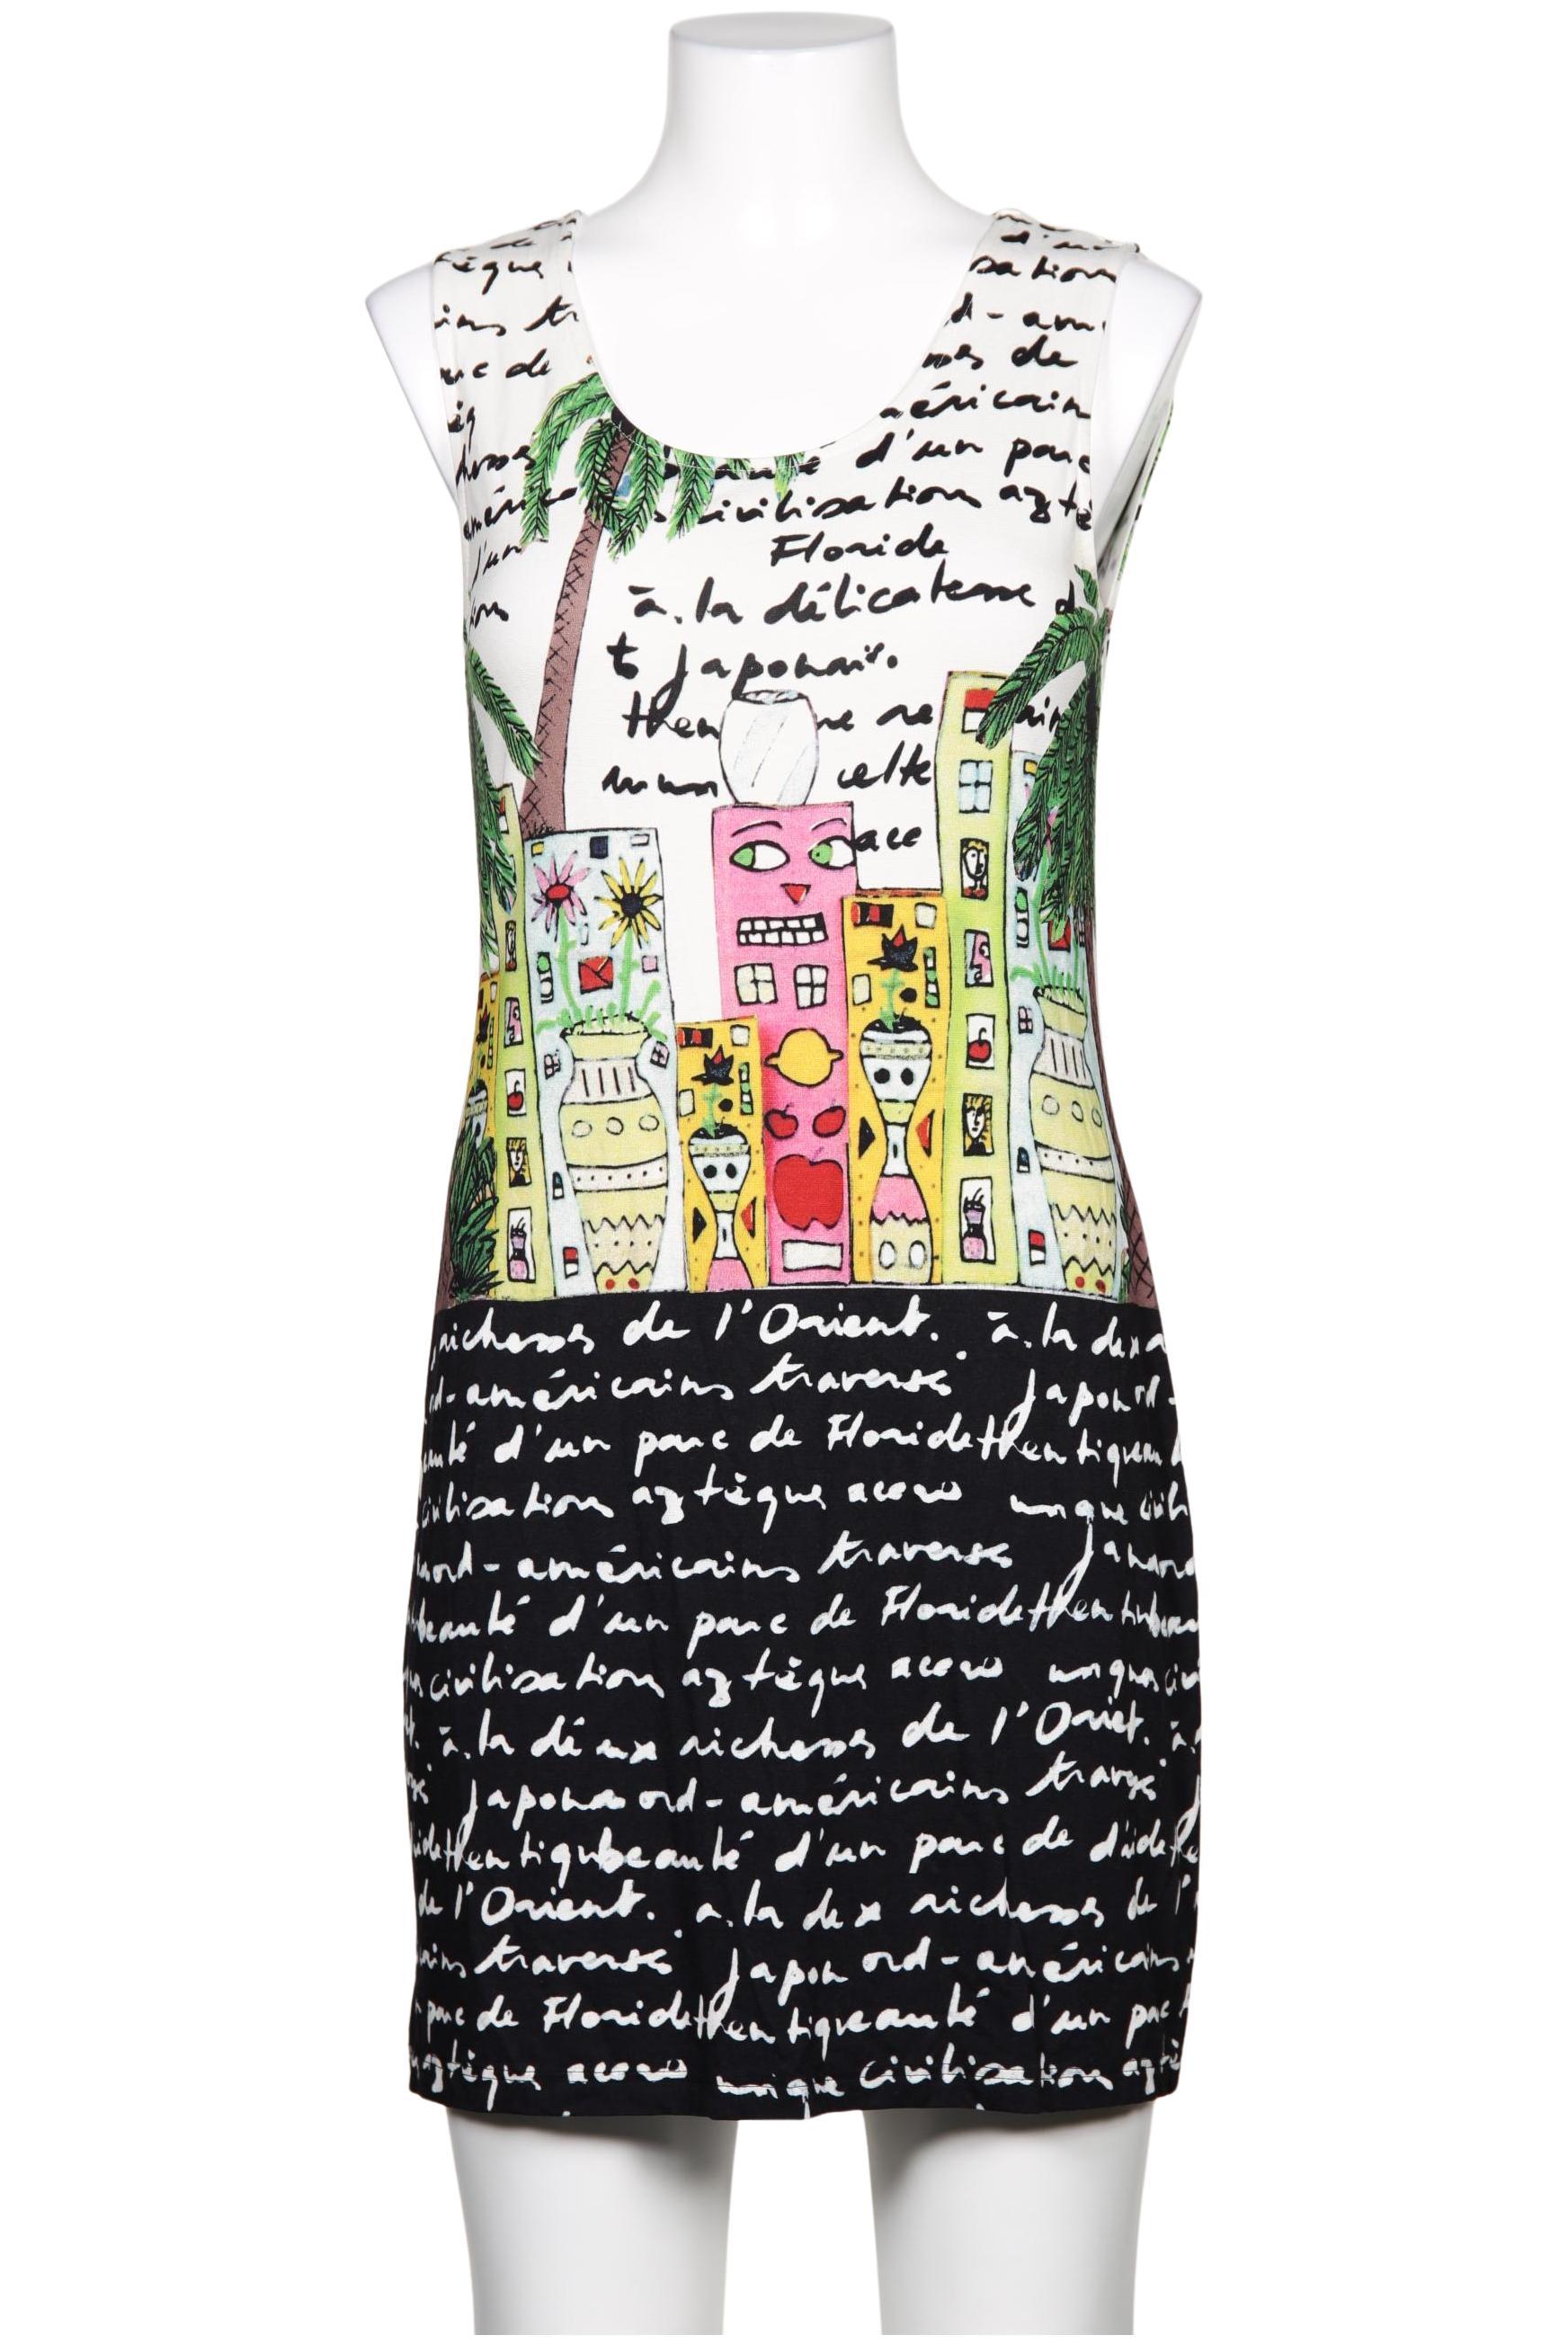 d'un
èque
sation
ins tr
d-am
c de
de
éricain
d'un parc
civilisation aztè
Floride
d'un
à la délicatesse d
t japonais.
then ne re ain
celte
ace
richesses de l'Orient. à la dex
rd-américains traversé Japon rd-
d'un parc de Floridethentiqueau
civilisation aztèque acoro unique civili
nord-américains traverse Janord
beauté d'un parc de Floridethentinbeau
civilisation aztèque acoro unques civi
t. à la déeux richesses de l'Oriet. à
Japonaord-américains traversé
idethentiqubeauté d'un parc de d'ide
de l'Orient. a la dex richesses de l'
ains traversé Japon ord-américains
parc de Floridethentiqueauté d'un parc
aztèque acoro unique civilisation aztè